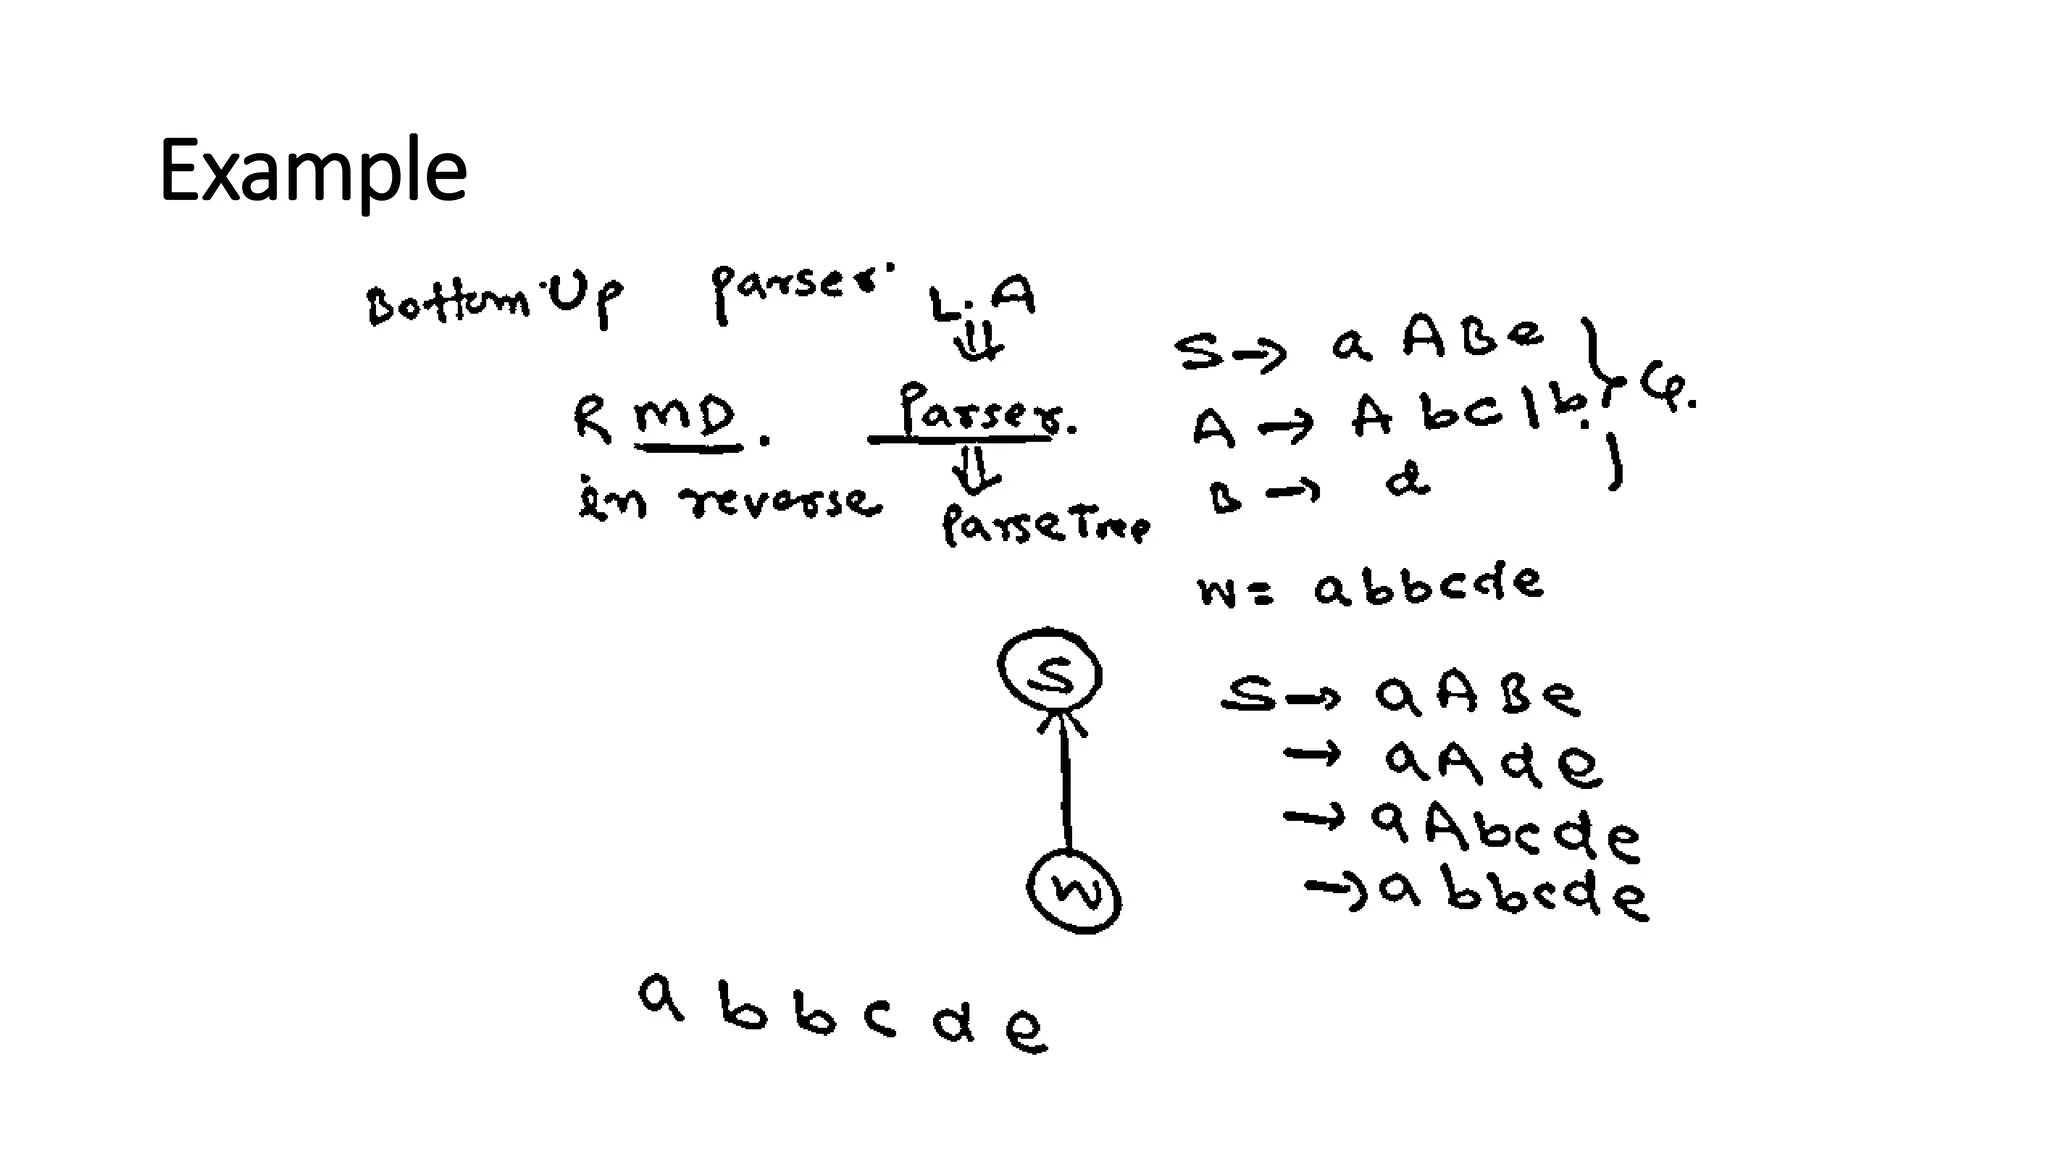 Example
Bottom-Up Parser.
L.A
RMD.
Parser.
in reverse
Parse Tree
S → a A B e
A → A b c | b.
B → d
G.
w = abbcde
S → a A B e
→ a A d e
→ a A b c d e
→ a b b c d e
S
W
a b b c d e